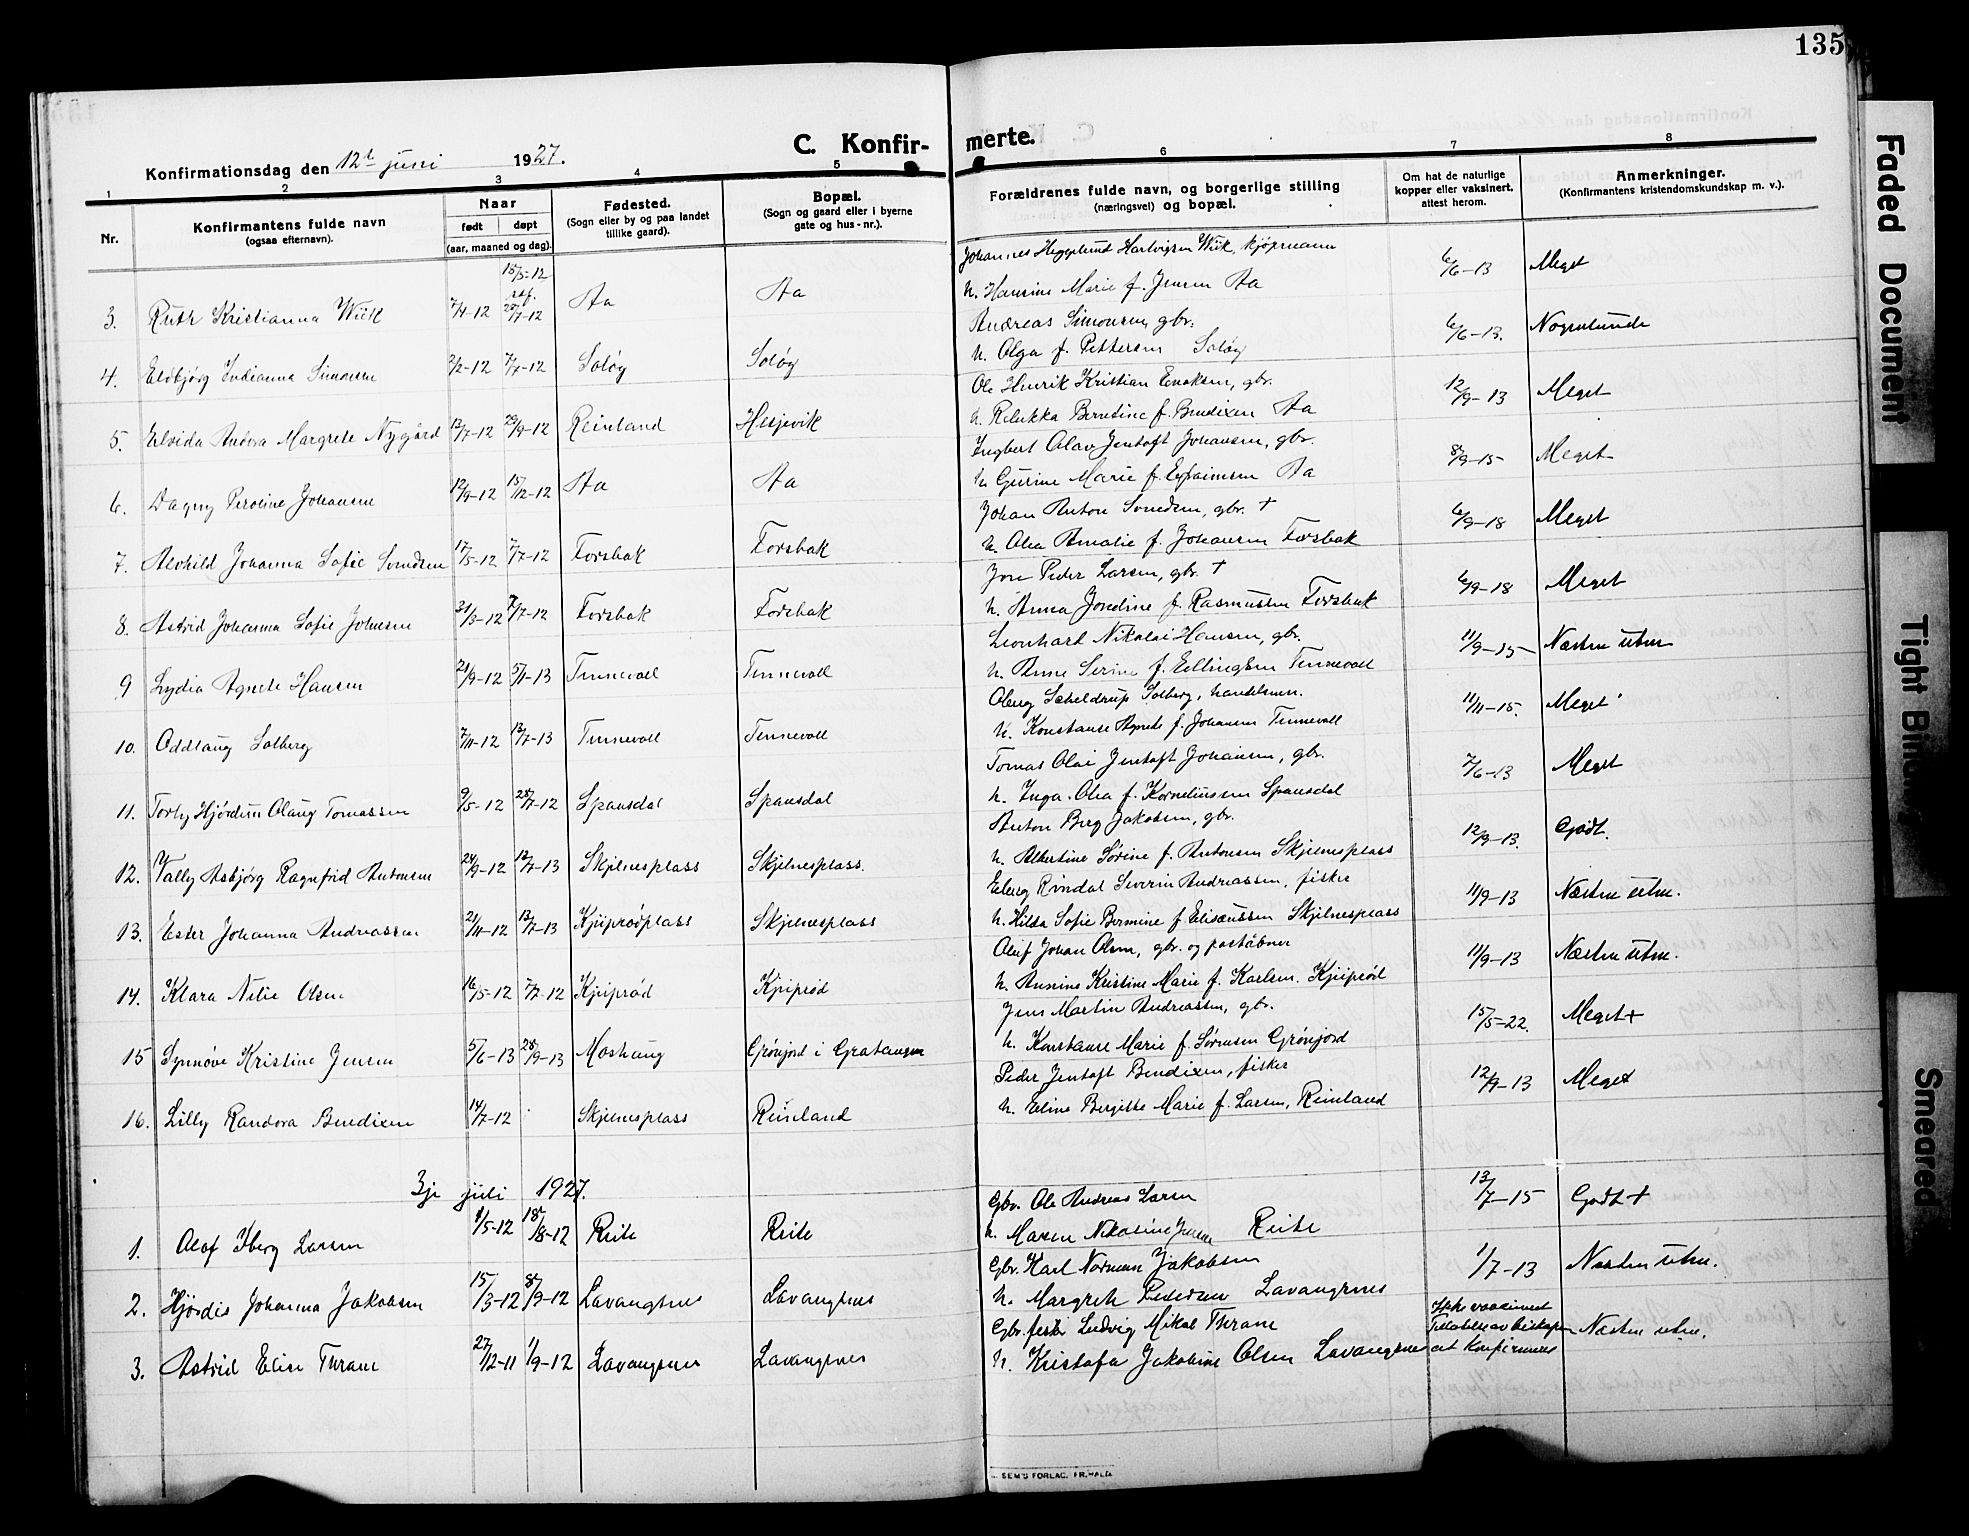 135
C. Konfir-
merte.
Konfirmationsdag den 12te juni 1927.
1 2 3 4 5 6 7 8
Nr.
Konfirmantens fulde navn
(ogsaa efternavn).
Naar
født døpt
(aar, maaned og dag).
Fødested.
(Sogn eller by og paa landet
tillike gaard).
Bopæl.
(Sogn og gaard eller i byerne
gate og hus-nr.).
Forældrenes fulde navn, og borgerlige stilling
(næringsvei) og bopæl.
Om hat de naturlige
kopper eller vaksinert,
attest herom.
Anmerkninger.
(Konfirmantens kristendomskundskap m. v.).
3. Ruth Kristianna Wiik 7/4-12 15/5-12 stf. 28/7-12 Aa Aa
Johannes Hegglund Hartvigsen Wiik, kjøpmann 6/6-13 Meget
h. Hansine Marie f. Jensen Aa
4. Eldbjørg Indianna Simonsen 2/2-12 7/4-12 Soløy Soløy
Andreas Simonsen, gbr. 6/6-13. Nogenlunde
h. Olga f. Pettersen Soløy
5. Elvida Andora Margrete Nygård 13/7-12 29/9-12 Reinland Hesjevik
Ole Henrik Kristian Enoksen, gbr. 12/9-13 Meget
h. Rebekka Berntine f. Bendixen Aa
6. Dagny Peroline Johansen 12/9-12 15/12-12 Aa Aa
Ingbert Olav Jentoft Johansen, gbr. 8/9-15 Meget
h. Gurine Marie f. Efraimsen Aa
7. Alvhild Johanna Sofie Svendsen 17/5-12 7/7-12 Forsbak Forsbak
Johan Anton Svendsen, gbr. + 6/9-18 Meget
h. Olea Amalie f. Johansen Forsbak
8. Astrid Johanna Sofie Johnsen 31/3-12 7/7-12 Forsbak Forsbak
Jon Peder Larsen, gbr. + 6/9-18 Meget
h. Anna Jordine f. Rasmussen Forsbak
9 Lydia Agnete Hansen 21/9-12 5/1-13 Tennevoll Tennevoll
Leonhard Nikolai Hansen, gbr. 11/9-15 Næsten utm
h. Anne Serine f. Ellingsen Tennevoll
10. Oddlaug Solberg 7/11-12 13/7-13 Tennevoll Tennevoll
Obeng Scheldrup Solberg, handelsmn. 11/11-15. Meget
h. Konstanse Agnete f. Johansen Tennevoll
11. Torly Hjørdun Olaug Tomassen 9/5-12 28/7-12 Spansdal Spansdal
Tomas Olai Jentoft Johansen, gbr. 7/6-13 Meget
h. Inga Olea f. Korneliussen Spansdal
12. Vally Asbjørg Ragnfrid Antonsen 24/9-12 12/7-13 Skjelnesplass Skjelnesplass.
Anton Berg Jakobsen, gbr. 12/9-13. Godt.
h. Albertine Sørine f. Antonsen Skjelnesplass
13. Ester Johanna Andreassen 21/11-12 13/7-13 Kjeiprødplass Skjelnesplass
Eberg Rindal Severin Andreassen, fisker 11/9-13 Næsten utm.
h. Hilda Sofie Bermine f. Eliseussen Skjelnesplass
14. Klara Nelie Olsen 16/5-12 7/7-12 Kjeiprød Kjeiprød
Oluf Johan Olsen, gbr. og poståbner 11/9-13 Næsten utm.
h. Annine Kristine Marie f. Karlsen. Kjeiprød
15 Synnøve Kristine Jensen 5/6-13 28/9-13 Moshaug Grønjord i Gratangen
Jens Martin Andreassen, gbr. 15/5-22. Meget+
h. Konstanse Marie f. Sørensen Grønjord
16. Lilly Randora Bendixen 14/7-12 Skjelnesplass Reinland
Peder Jentoft Bendixen, fisker 12/9-13 Meget
h. Eline Bergitte Marie f. Larsen, Reinland
3je juli 1927.
1. Olaf Iberg Larsen 1/5-12 18/8-12 Reite Reite
Gbr. Ole Andreas Larsen 13/7-15 Godt +
h. Maren Nikoline Jensen Reite
2. Hjørdis Johanna Jakobsen 15/3-12 8/9-12 Lavangsnes Lavangsnes
Gbr. Karl Norman Jakobsen 1/7-13 Næsten utm.
h. Margrete Pedersen Lavangsnes
3. Astrid Elise Thrane 27/12-11 1/9-12 Lavangsnes Lavangsnes
Gbr. fisker Ludvig Mikal Thrane Ikke vaccinert Tillatelse av biskopen at konfirmeres Næsten utm.
h. Kristofa Jakobine Olsen Lavangsnes
SEM'S FORLAG, FR.HALD
Faded Document
Tight Binding
Smeared